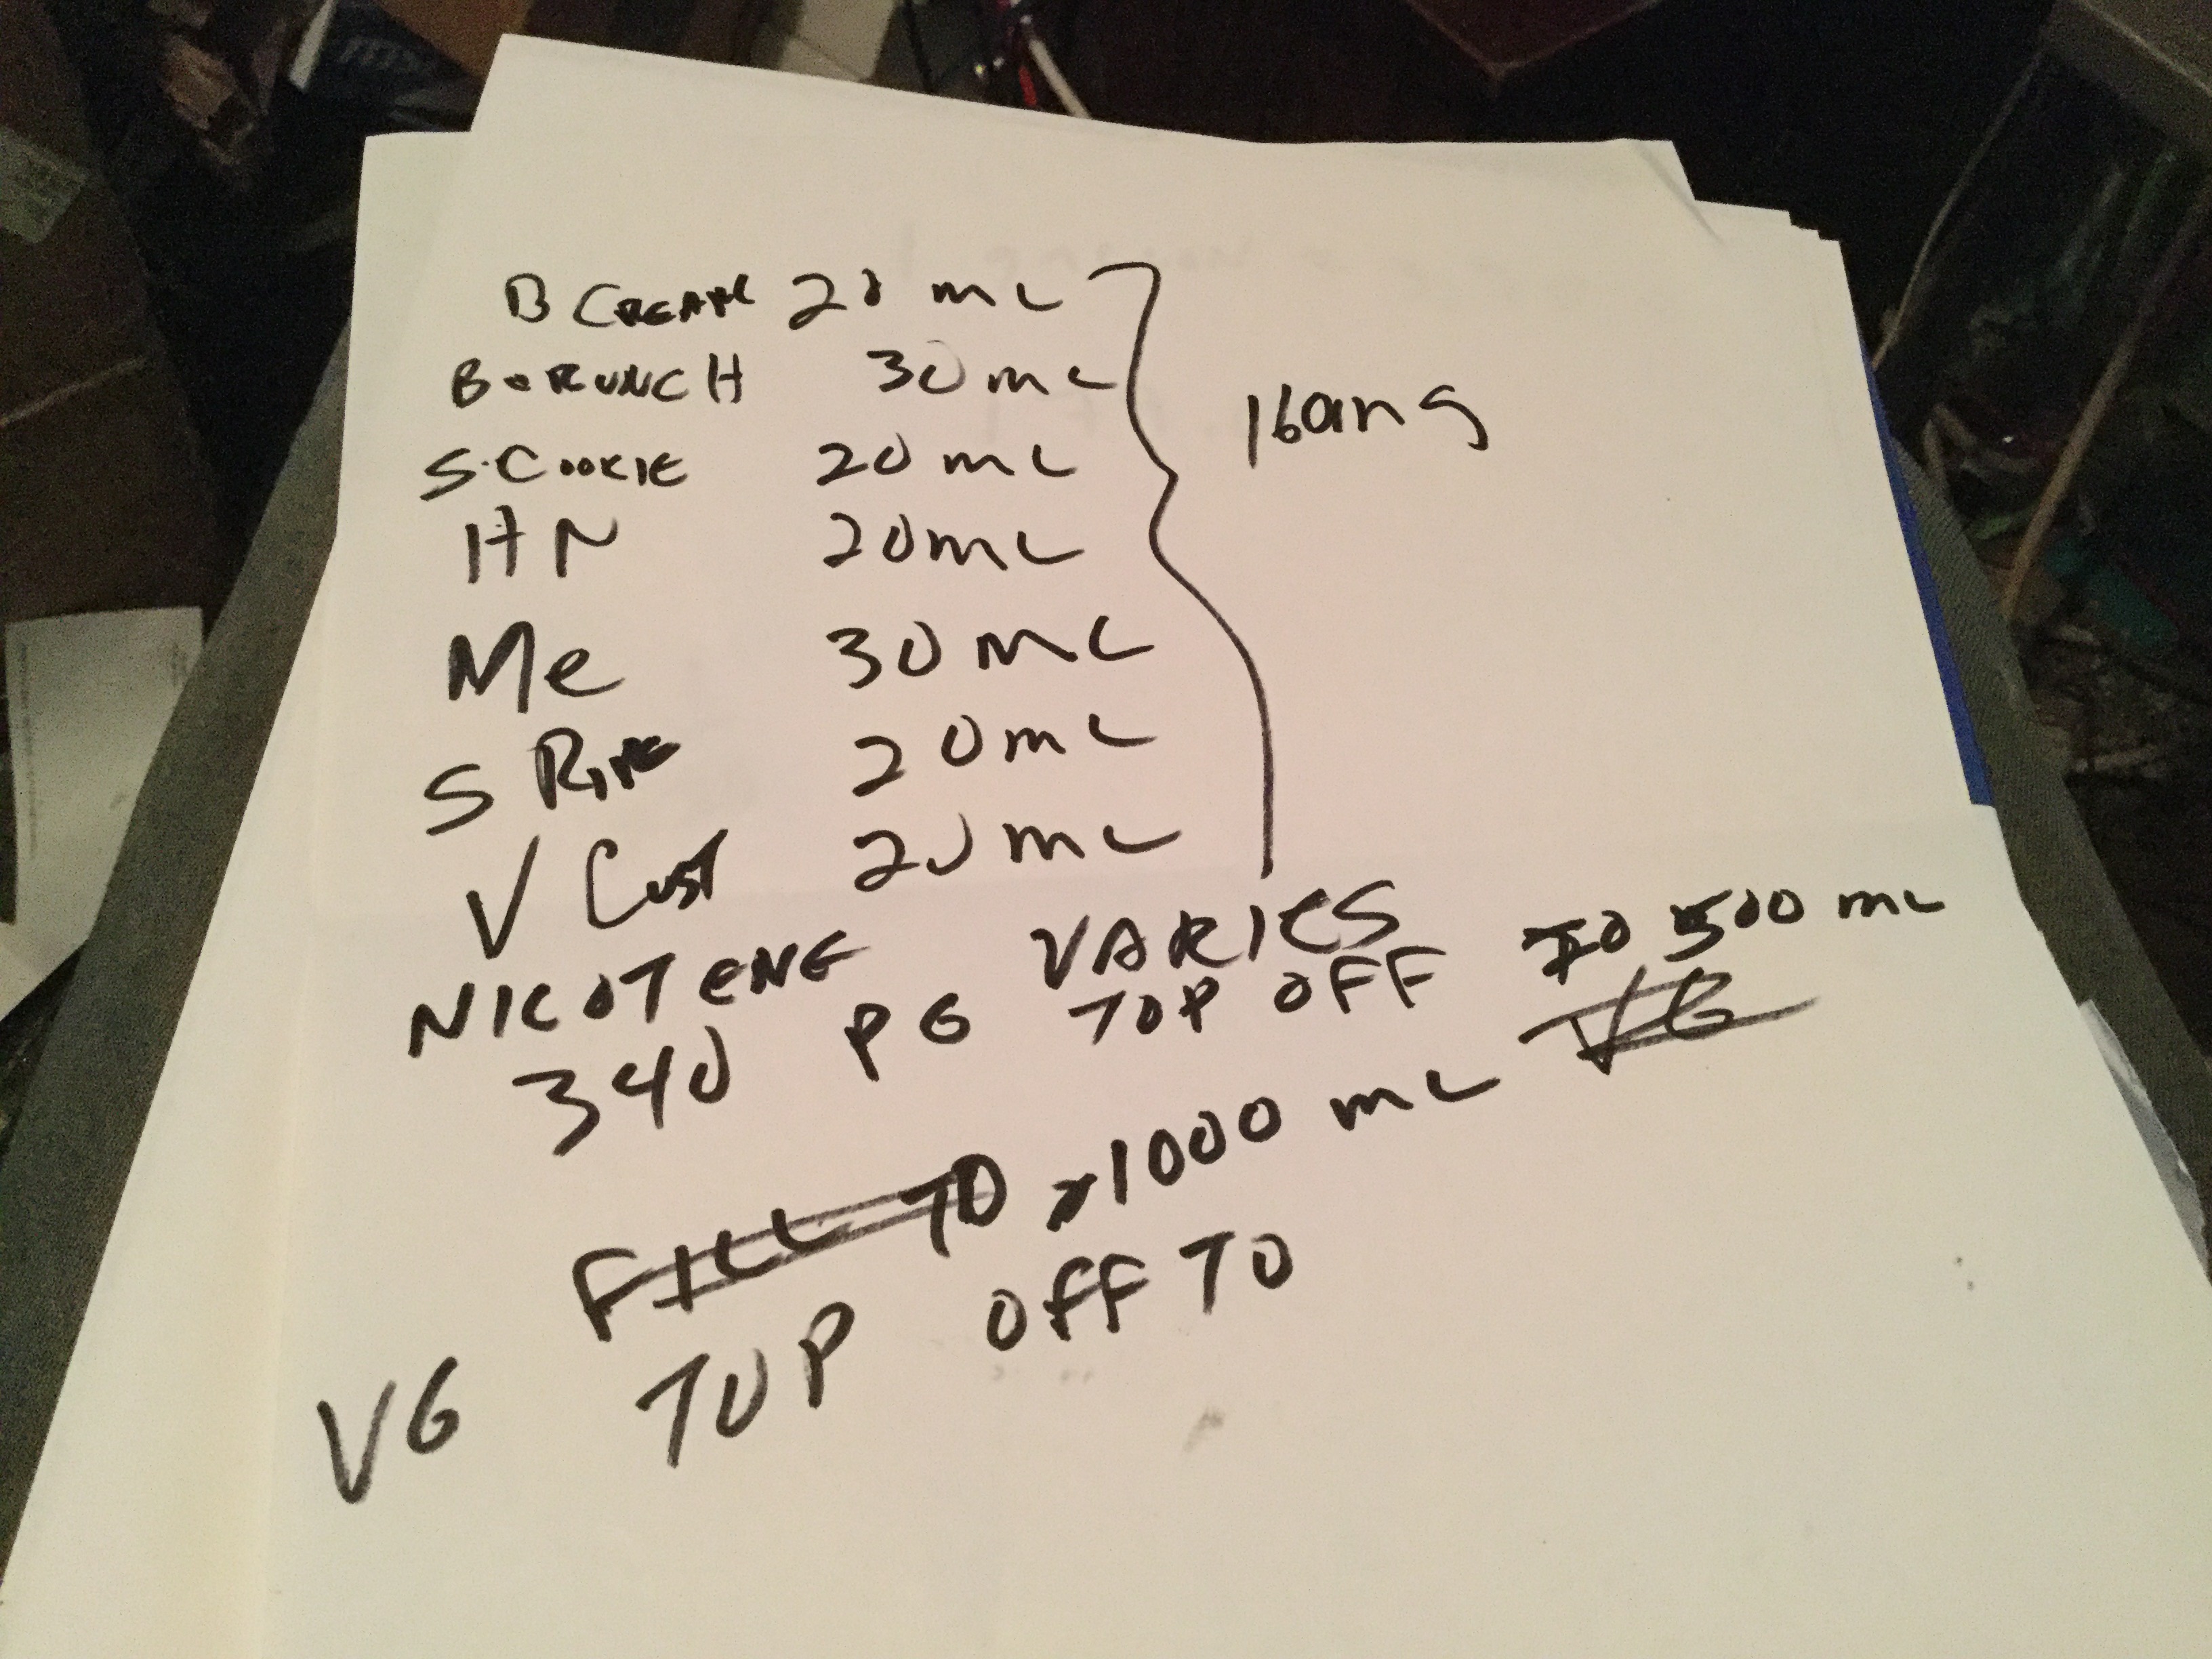 B CREAM 20 mL
B CRUNCH 30 mL
S. COOKIE 20 mL
HN 20 mL
Me 30 mL
S RIPE 20 mL
V CUST 20 mL
160
NICOTENE VARIES
340 PG TOP OFF TO 500 mL
VG
FILL TO 1000 mL
VG TOP OFF TO